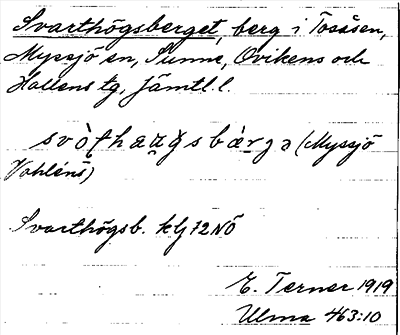 Svarthögsberget, berg i Tossåsen,
Myssjö sn, Sunne, Ovikens och
Hallens tg, Jämtl. l.
(Myssjö
Svarthögsb. klj 72 NÖ
E. Terner 1919
Ulma 463:10